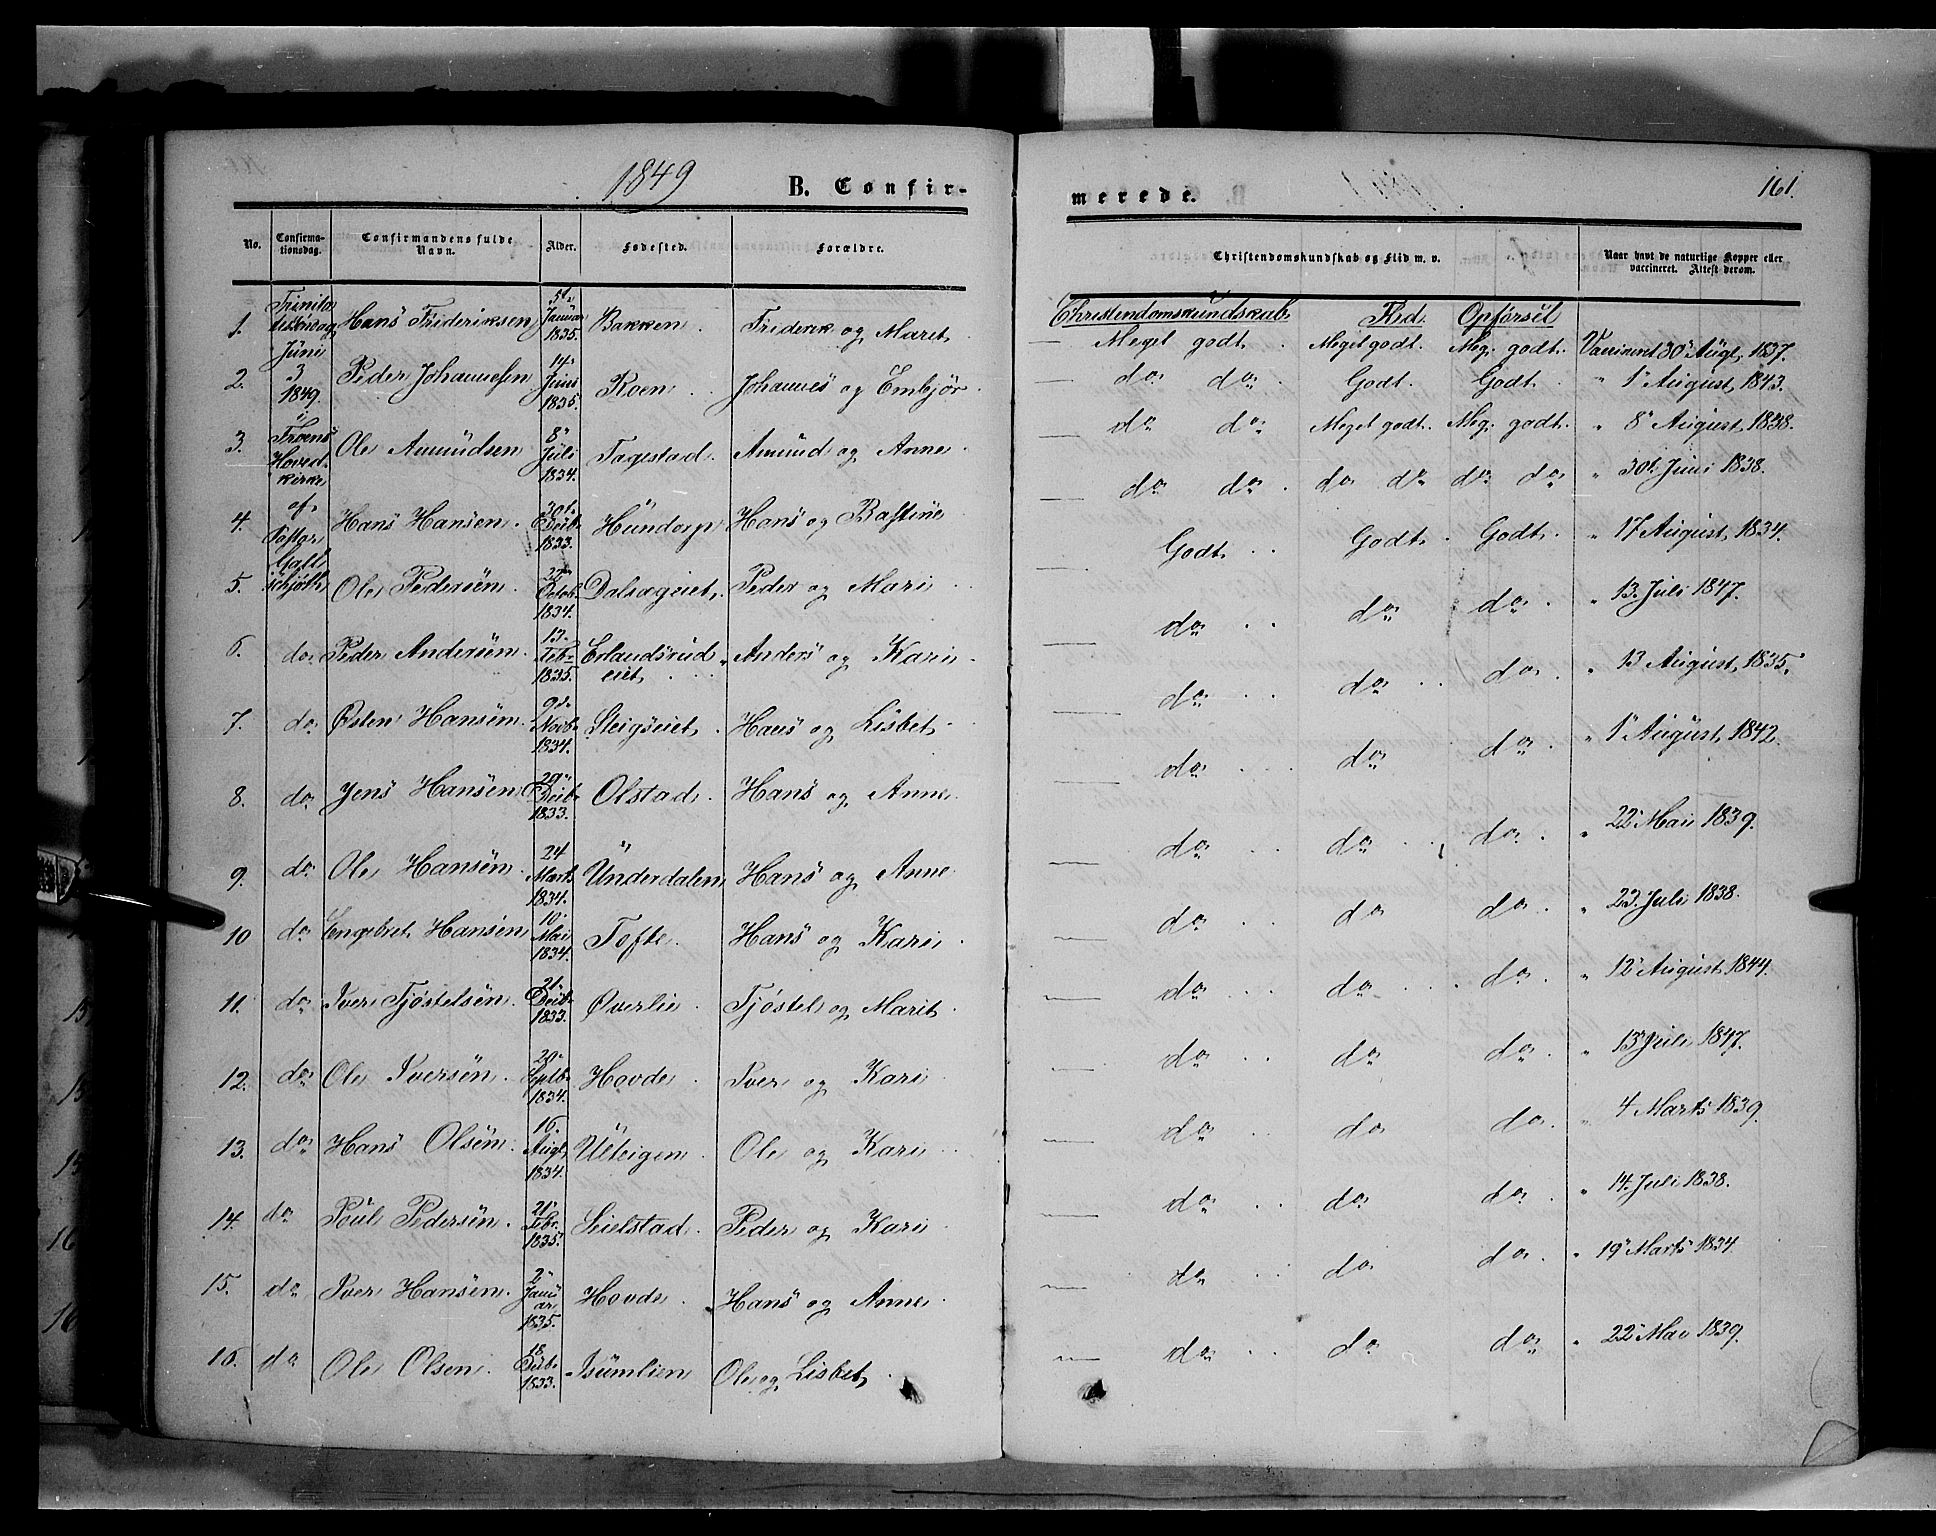 1849
B. Confir-
merede.
161.
No.
Confirma-
tionsdag.
Confirmandens fulde
Navn.
Alder.
Fødested.
Forældre.
Christendomskundskab og Flid m. v.
Naar havt de naturlige Kopper eller
vaccineret. Attest derom.
Christendomskundskab Flid Opførsel
1. Hans Frideriksen 5te Januar 1835. Bakken. Friderik og Marit Meget godt. Meget godt. Meg. godt. Vaccineret 30 Augt. 1837.
Juni
3
1849.
2. Peder Johannesen 14 Juni 1835. Roen. Johannes og Embjør do do Godt. Godt. " 1 August 1843.
3. Hoved-
kirke
af
Pastor
Ole Amundsen 8 Juli 1834. Fagestad. Amund og Anne do do Meget godt. Meg. godt. " 8 August 1838.
4. Hans Hansen. 30t. Decb. 1833. Hundorp Hans og Bastine do do do do do do " 30t Juni 1838.
5. Ole Pedersen. Octob. 1834. Dalseg eiet. Peder og Mari Godt Godt Godt " 17 August 1834.
6. do Peder Andersen. 13 Febr 1835. Erlandsrud eiet Anders og Kari do do do " 13. Juli 1847.
7. do Østen Hansen. 9de Novb 1834. Steigs eiet Hans og Lisbet do do do " 13 August 1835.
8. do Jens Hansen 29 Decb 1833. Olstad. Hans og Anne do do do " 1 August 1842.
9. do Ole Hansen 24 Marts 1834. Underdalen Hans og Anne do do do " 22 Mai 1839.
10 do Engebret Hansen 10 Mai 1834. Tofte. Hans og Kari do do do " 23. Juli 1838.
11. do Iver Tjøstelsen. 21 Decb 1833. Øverlie Tjøstel og Marit do do do " 12 August 1844.
12. do Ole Iversen 20 Septb 1834. Hovde Iver og Kari do do do " 13 Juli 1847.
13. do Hans Olsen. 16 Augt 1834. Uteigen Ole og Kari do do do " 4 Marts 1839.
14. do Poul Pedersen. 21 Febr. 1835. Leielstad Peder og Kari do do do " 14. Juli 1838.
15. do Iver Hansen. 2 Januar 1835. Hovde Hans og Anne do do do " 19 Marts 1834.
16. do Ole Olsen 18 Decb. 1833. Isumlien Ole og Lisbet do do do " 22 Mai 1839.